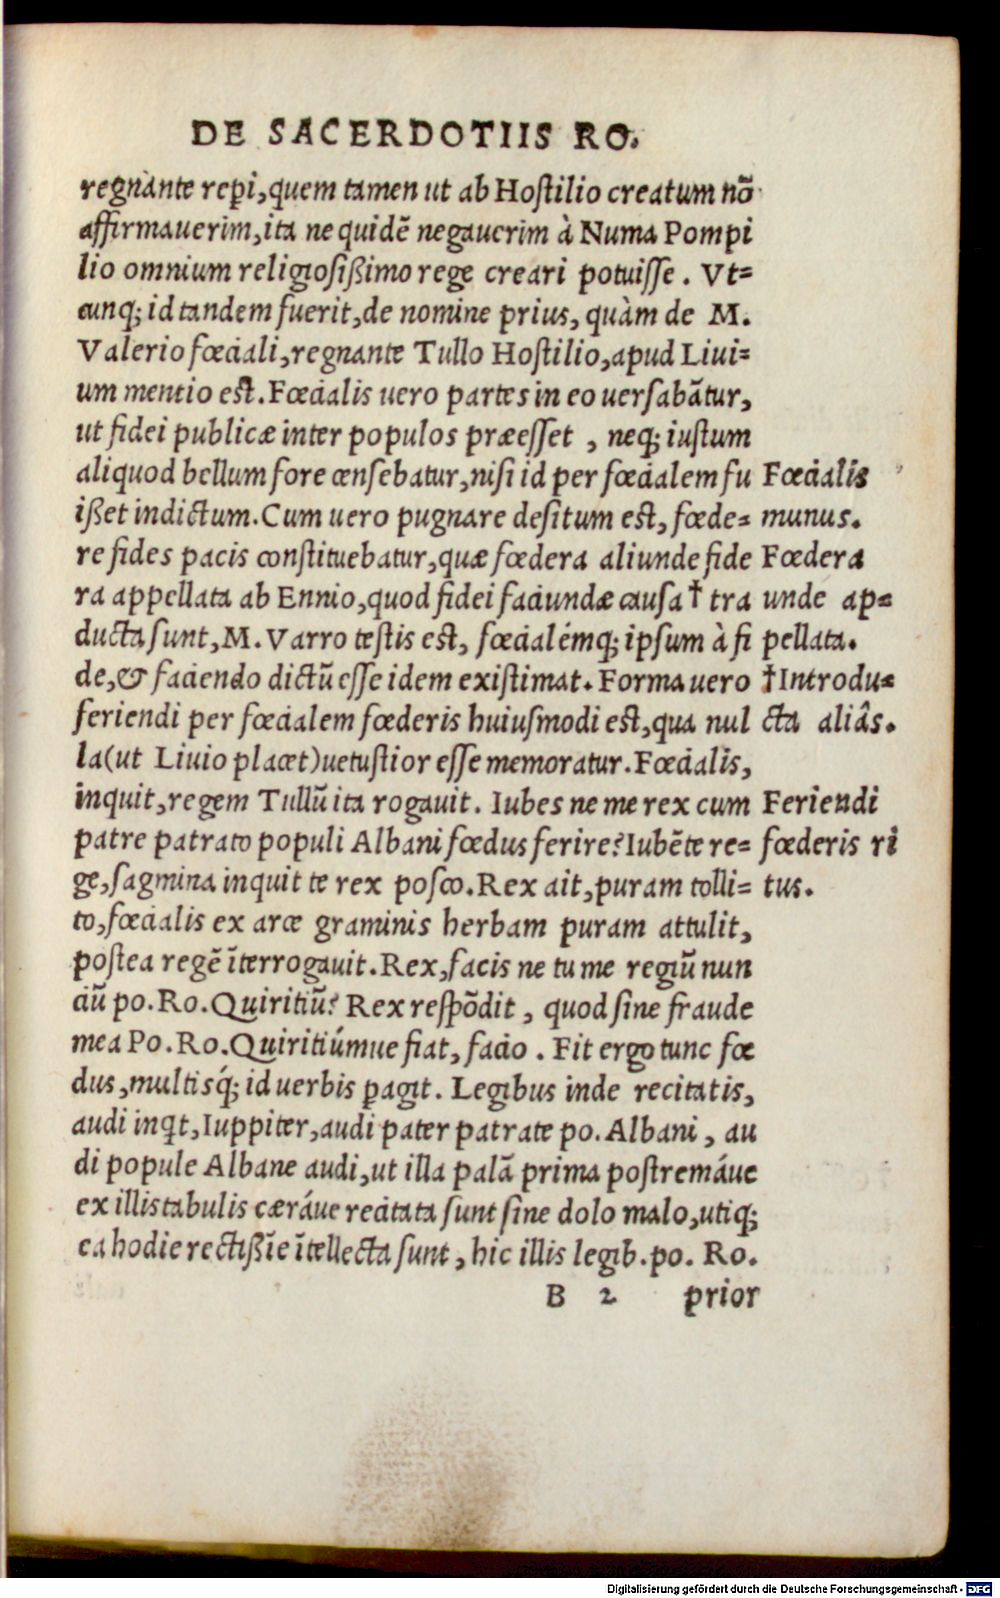 DE SACERDOTIIS RO.
regnante reperi, quem tamen ut ab Hostilio creatum nō
affirmauerim, ita ne quidē negauerim à Numa Pompi
lio omnium religiosißimo rege creari potuisse. Vt=
cunq; id tandem fuerit, de nomine prius, quàm de M.
Valerio fœciali, regnante Tullo Hostilio, apud Liui=
um mentio est. Fœcialis uero partes in eo uersabātur,
ut fidei publicæ inter populos præesset, neq; iustum
aliquod bellum fore censebatur, nisi id per fœcialem fu
ißet indictum. Cum uero pugnare desitum est, fœde=
re fides pacis constituebatur, quæ fœdera aliunde fide
ra appellata ab Ennio, quod fidei faciundæ causa † tra
ducta sunt, M. Varro testis est, fœcialémq; ipsum à fi
de, & faciendo dictū esse idem existimat. Forma uero
feriendi per fœcialem fœderis huiusmodi est, qua nul
la (ut Liuio placet) uetustior esse memoratur. Fœcialis,
inquit, regem Tullū ita rogauit. Iubes ne me rex cum
patre patrato populi Albani fœdus ferire? Iubēte re=
ge, sagmina inquit te rex posco. Rex ait, puram tolli=
to, fœcialis ex arce graminis herbam puram attulit,
postea regē īterrogauit. Rex, facis ne tu me regiū nun
ciū po. Ro. Quiritiū? Rex respōdit, quod sine fraude
mea Po. Ro. Quiritiúmue fiat, facio. Fit ergo tunc fœ
dus, multisq́; id uerbis ꝑagit. Legibus inde recitatis,
audi inqt, Iuppiter, audi pater patrate po. Albani, au
di popule Albane audi, ut illa palā prima postremáue
ex illis tabulis ceráue recitata sunt sine dolo malo, utiq;
ea hodie rectißīe ītellecta sunt, hic illis legib. po. Ro.
B 2 prior
Fœcialis
munus.
Fœdera
unde ap=
pellata.
† Introdu=
cta aliâs.
Feriendi
fœderis ri
tus.
Digitalisierung gefördert durch die Deutsche Forschungsgemeinschaft - DFG